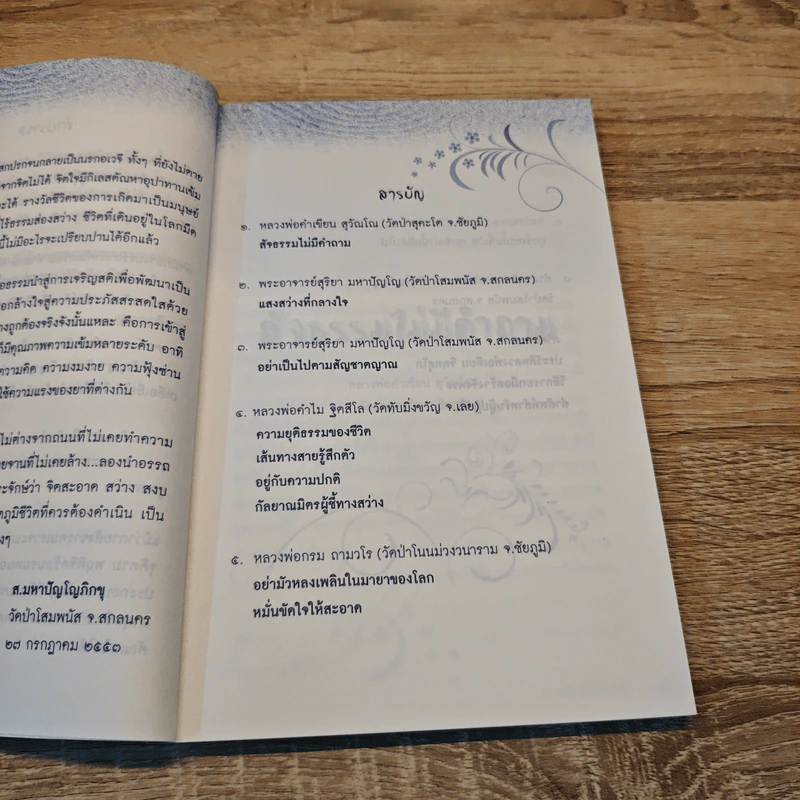 สกปรกจนกลายเป็นนรกอเวจี ทั้งๆ ที่ยังไม่ตาย
จากจิตไม่ได้ จิตใจมีกิเลสตัณหาอุปาทานเข้ม
ะได้ รางวัลชีวิตของการเกิดมาเป็นมนุษย์
ไร้ธรรมส่องสว่าง ชีวิตที่เดินอยู่ในโลกมืด
นี้ไม่มีอะไรจะเปรียบปานได้อีกแล้ว
อธรรมนำสู่การเจริญสติเพื่อพัฒนาเป็น
อกล้างใจสู่ความประภัสสรสดใสด้วย
างถูกต้องจริงจังนั้นแหละ คือการเข้าสู่
ก็มีคุณภาพความเข้มหลายระดับ อาทิ
ความคิด ความงมงาย ความฟุ้งซ่าน
ใช้ความแรงของยาที่ต่างกัน
ไม่ต่างจากถนนที่ไม่เคยทำความ
ยจานที่ไม่เคยล้าง...ลองนำอรรถ
ะจักษ์ว่า จิตสะอาด สว่าง สงบ
ตภูมิชีวิตที่ควรต้องดำเนิน เป็น
งๆ
ส.มหาปัญโญภิกขุ
วัดป่าโสมพนัส จ.สกลนคร
๒๗ กรกฎาคม ๒๕๕๓
สารบัญ
๑. หลวงพ่อคำเขียน สุวัณโณ (วัดป่าสุคะโต จ.ชัยภูมิ)
สัจธรรมไม่มีคำถาม
๒. พระอาจารย์สุริยา มหาปัญโญ (วัดป่าโสมพนัส จ.สกลนคร)
แสงสว่างที่กลางใจ
๓. พระอาจารย์สุริยา มหาปัญโญ (วัดป่าโสมพนัส จ.สกลนคร)
อย่าเป็นไปตามสัญชาตญาณ
๔. หลวงพ่อคำไม ฐิตสีโล (วัดทับมิ่งขวัญ จ.เลย)
ความยุติธรรมของชีวิต
เส้นทางสายรู้สึกตัว
อยู่กับความปกติ
กัลยาณมิตรผู้ชี้ทางสว่าง
๕. หลวงพ่อกรม ถามวโร (วัดป่าโนนม่วงวนาราม จ.ชัยภูมิ)
อย่ามัวหลงเพลินในมายาของโลก
หมั่นขัดใจให้สะอาด